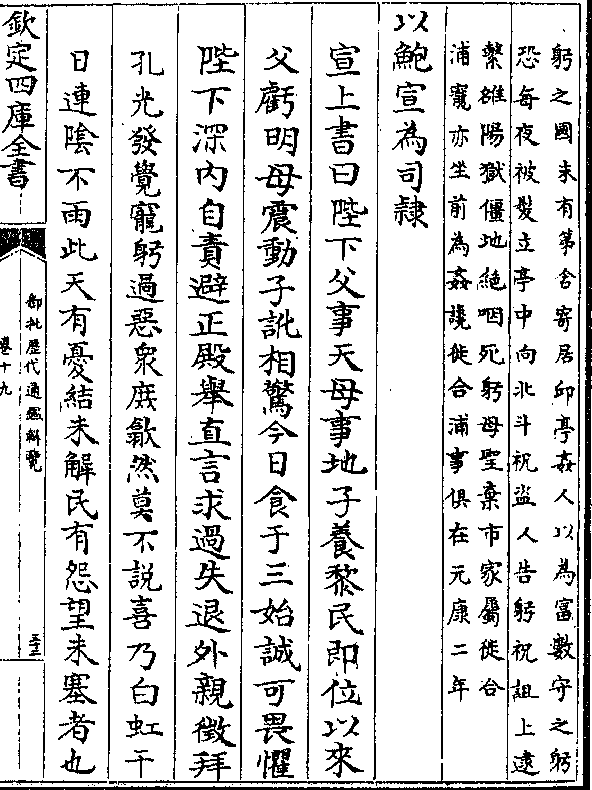 躬之國未有第舍寄居邱亭姦人以為富數守之躬
恐每夜被髮立亭中向北斗祝盜人告躬祝詛上逮
繫雒陽獄僵地絶咽死躬母聖棄市家屬徙合
浦寵亦坐前為姦讒徙合浦事俱在元康二年
以鮑宣為司隷
宣上書曰陛下父事天母事地子養黎民即位以來
父虧明母震動子訛相驚今日食于三始誠可畏懼
陛下深内自責避正殿舉直言求過失退外親徵拜
孔光發覺寵躬過惡衆庻歙然莫不説喜乃白虹干
日連陰不雨此天有憂結未解民有怨望未塞者也
欽定四庫全書
御批歷代通鑑輯覽
卷十九